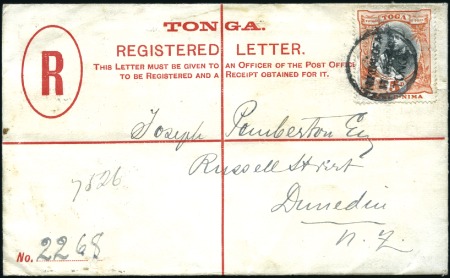 TONGA.
REGISTERED LETTER.
THIS LETTER MUST BE GIVEN TO AN OFFICER OF THE POST OFFIC
TO BE REGISTERED AND A RECEIPT OBTAINED FOR IT.
R
TOGA
Joseph Pemberton Esq
Russell Street
Dunedin
N.Z.
7526
No. 2268